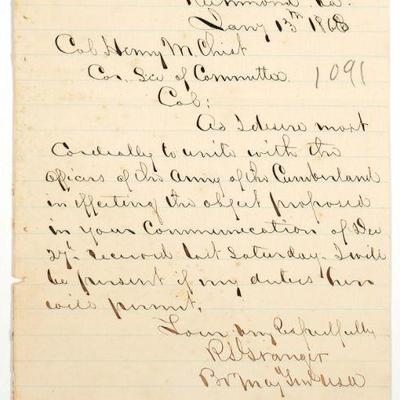 Richmond Va.
Jany 13th 1868
Col Henry M Cist
Cor. Sec of Committee
1091
Col:
As I desire most
Cordially to unite with the
officers of the Army of the Cumberland
in effecting the object proposed
in your Communication of Dec
27th received last Saturday. I will
be present if my duties here
will permit.
Your very Respectfully
R S Granger
Bv Maj Genl USA